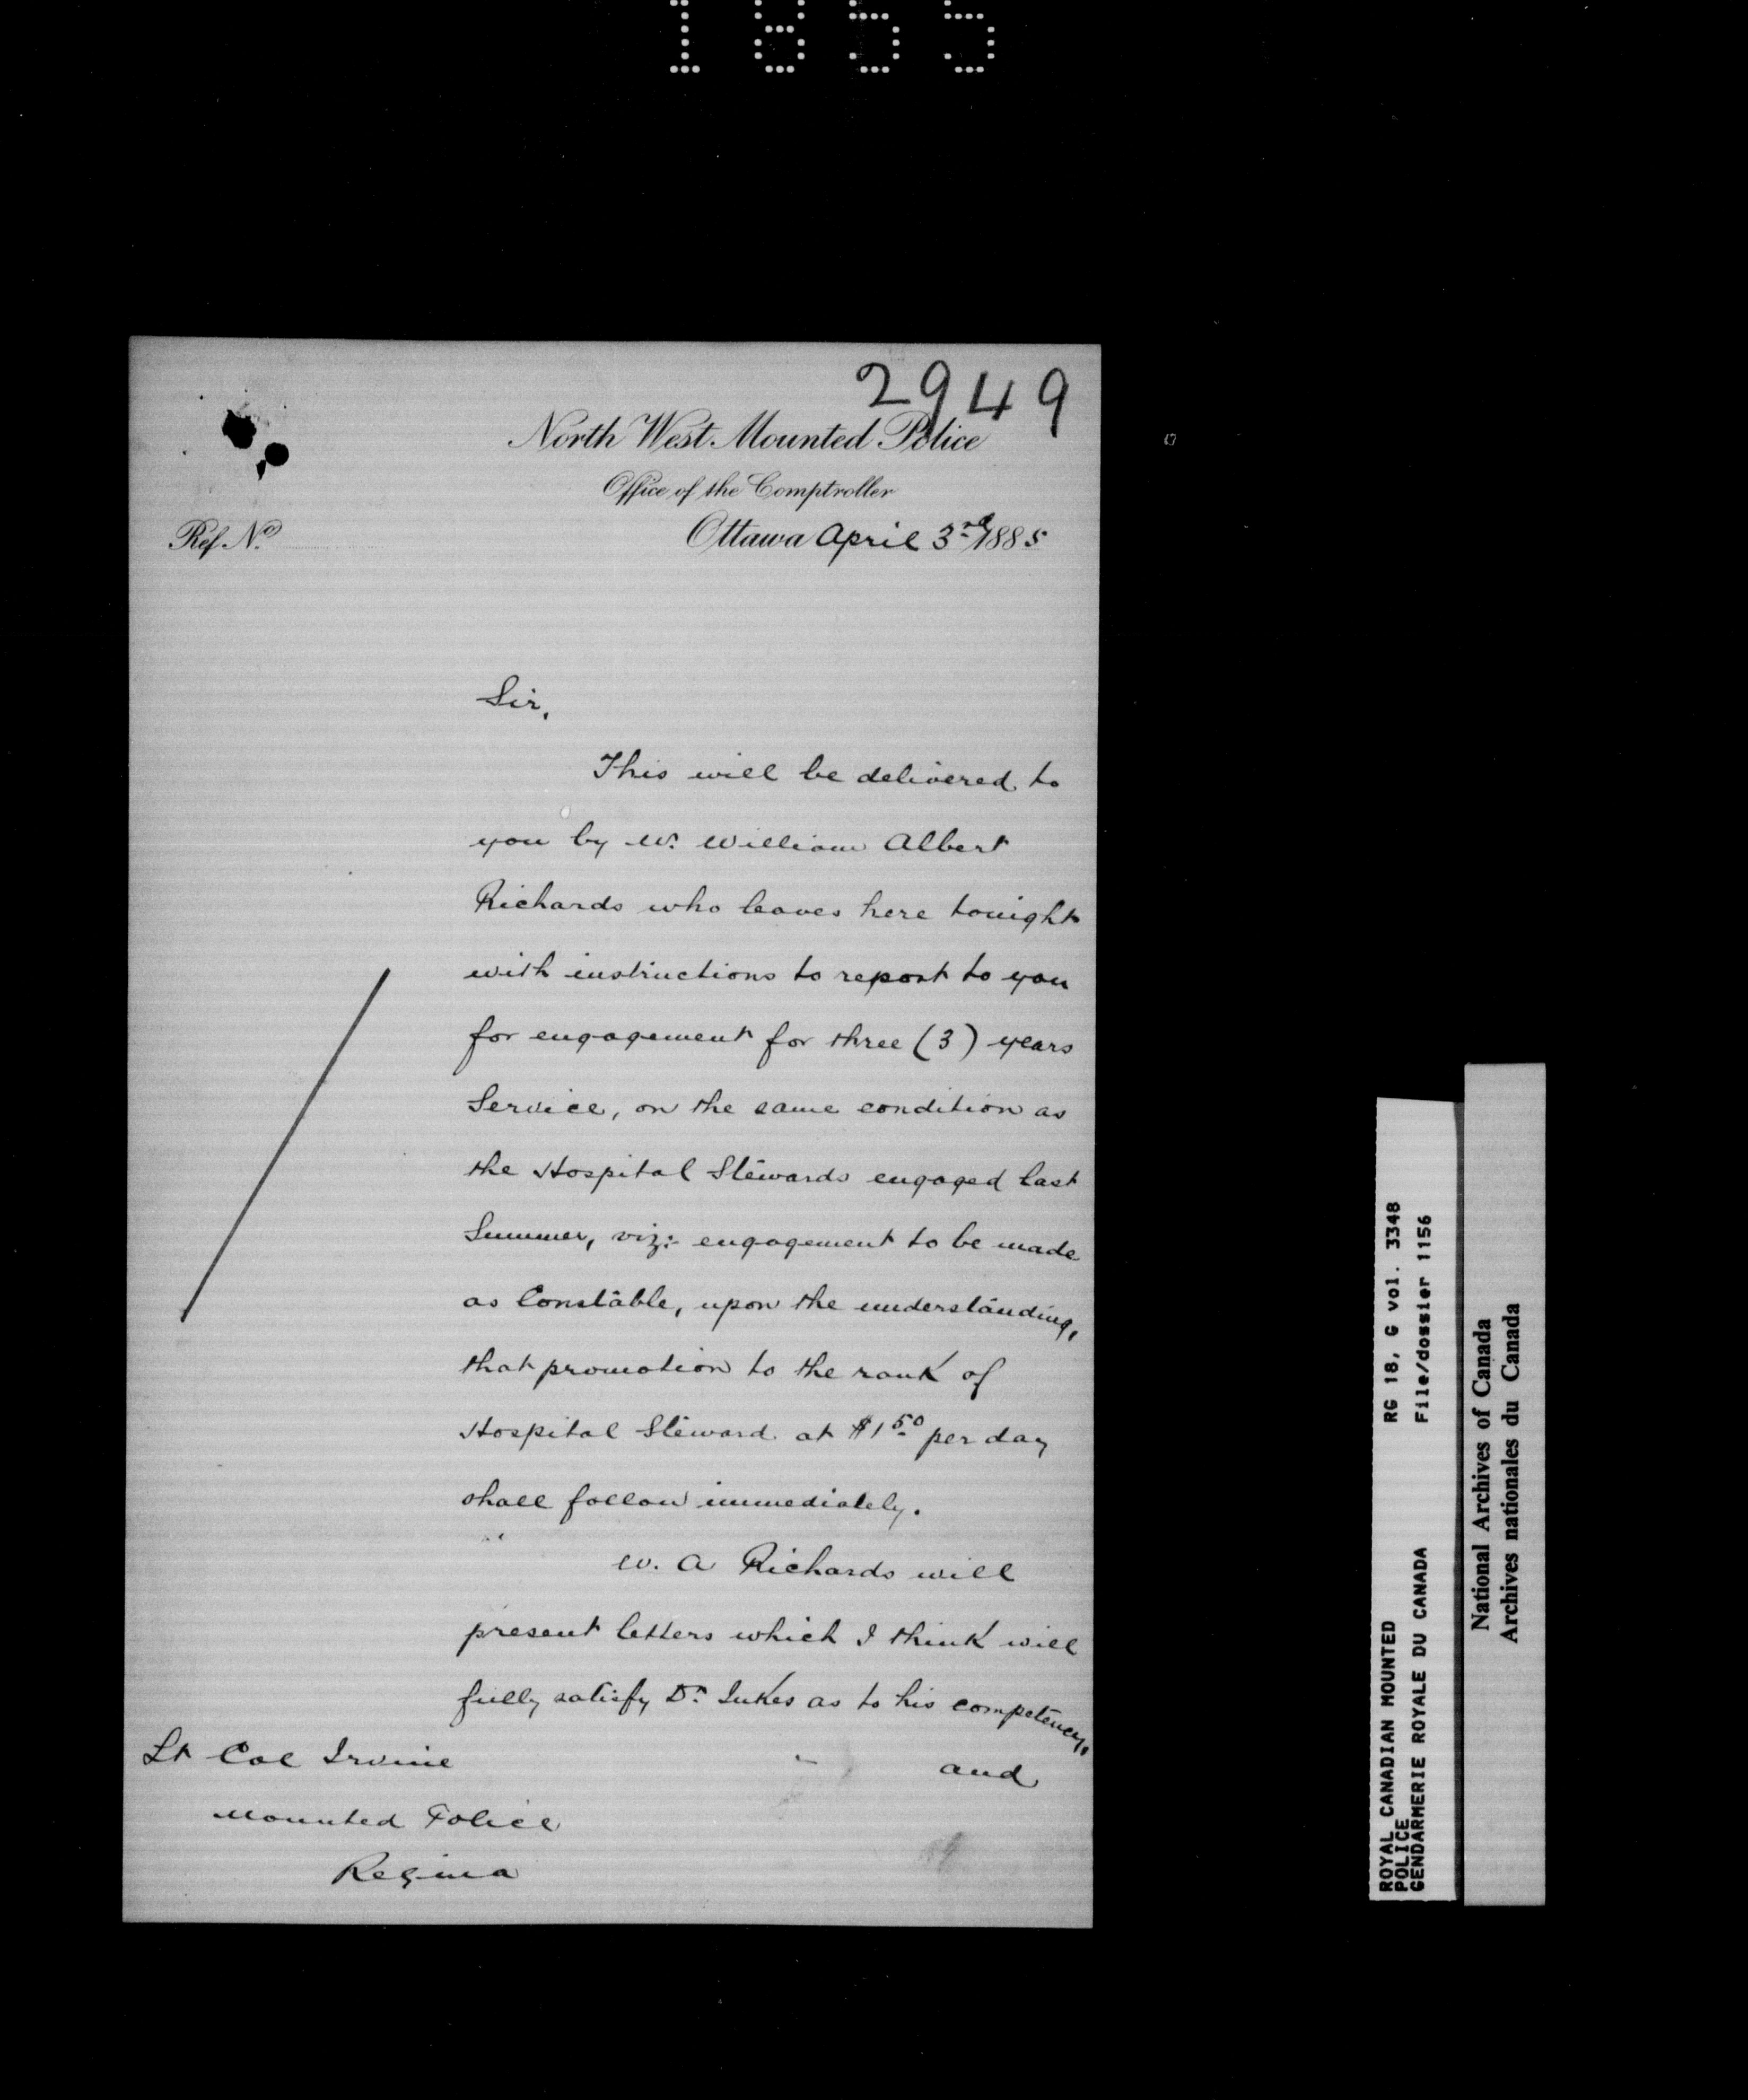 1855
2949
North West Mounted Police
Office of the Comptroller
Ref. No.
Ottawa April 3rd 1885
Sir,
This will be delivered to
you by Mr. William Albert
Richards who leaves here tonight
with instructions to report to you
for engagement for three (3) years
Service, on the same condition as
the Hospital Stewards engaged last
Summer, viz:- engagement to be made
as Constable, upon the understanding,
that promotion to the rank of
Hospital Steward at $1.50 per day
shall follow immediately.
W. A Richards will
present letters which I think will
fully satisfy Dr. Jukes as to his competency,
and
Lt Col Irvine
Mounted Police
Regina
ROYAL CANADIAN MOUNTED
POLICE
GENDARMERIE ROYALE DU CANADA
RG 18, G vol. 3348
File/dossier 1156
National Archives of Canada
Archives nationales du Canada